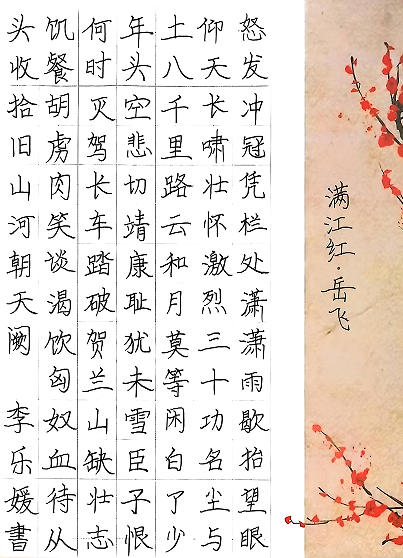 满江红·岳飞
怒发冲冠凭栏处潇潇雨歇抬望眼
仰天长啸壮怀激烈三十功名尘与
土八千里路云和月莫等闲白了少
年头空悲切靖康耻犹未雪臣子恨
何时灭驾长车踏破贺兰山缺壮志
饥餐胡虏肉笑谈渴饮匈奴血待从
头收拾旧山河朝天阙 李乐媛書